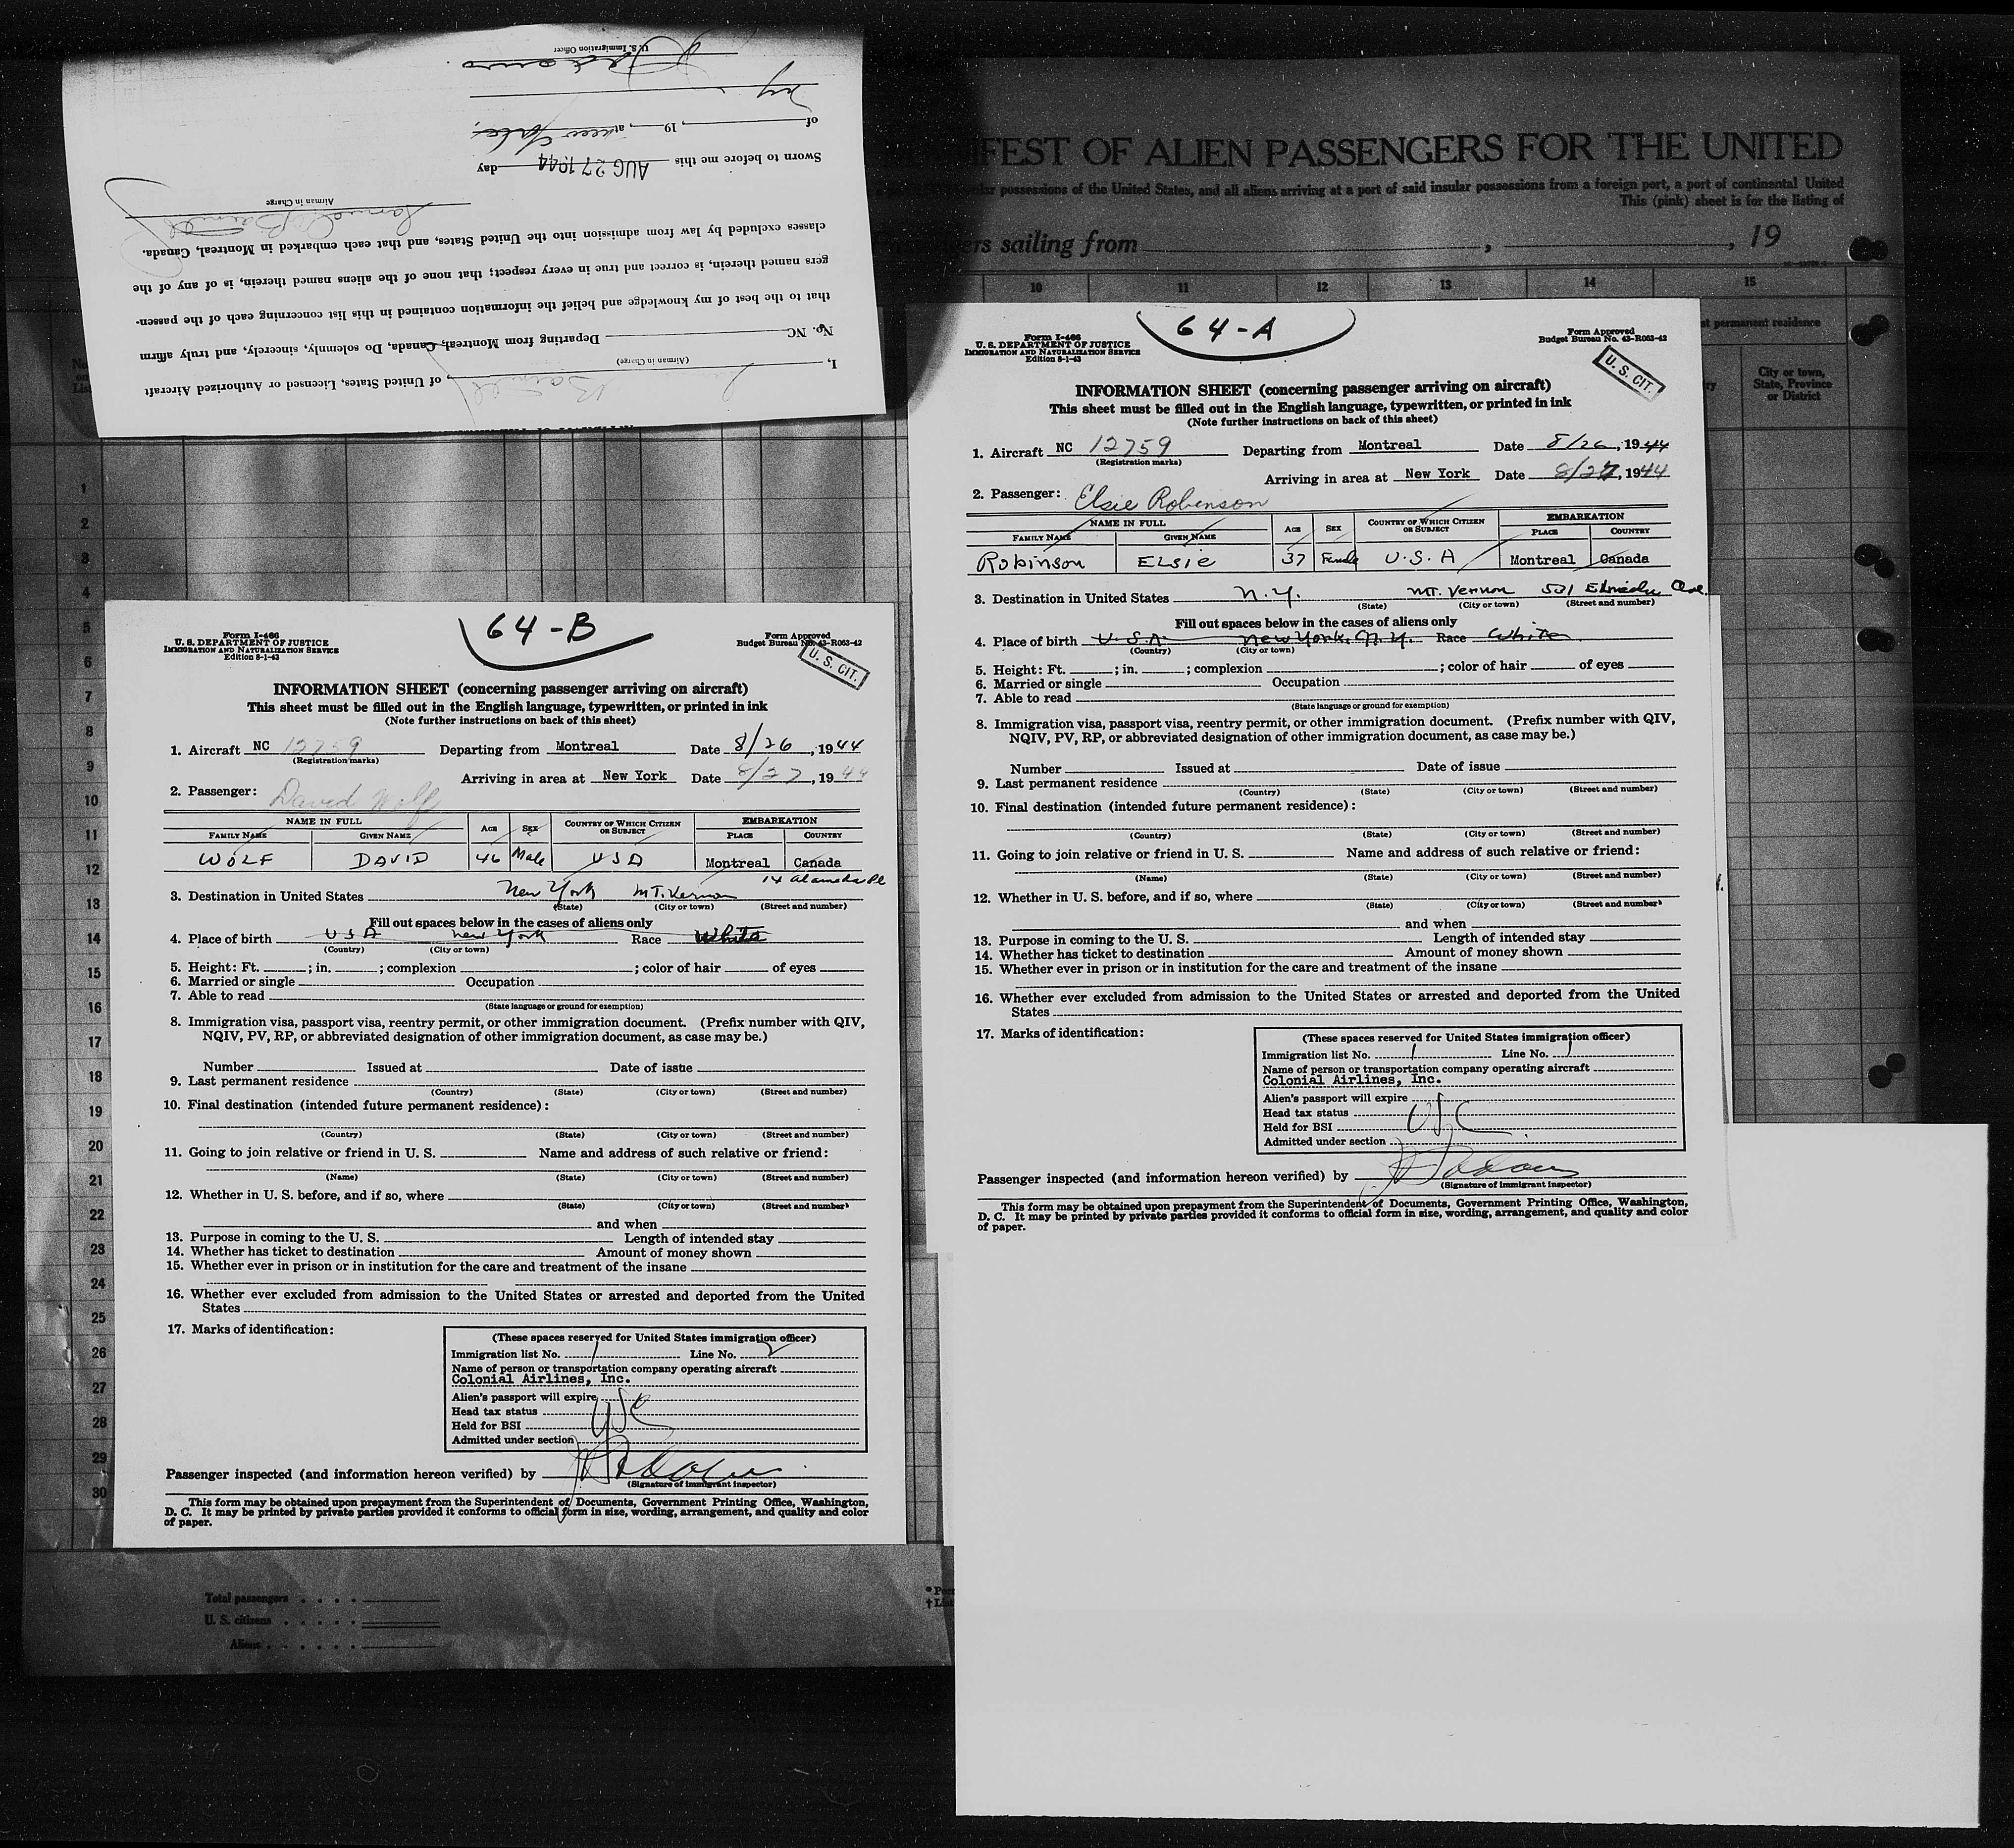 I, , of United States, Licensed or Authorized Aircraft
(Airman in Charge)
No. NC Departing from Montreal, Canada, Do solemnly, sincerely, and truly affirm
that to the best of my knowledge and belief the information contained in this list concerning each of the passen-
gers named therein, is correct and true in every respect; that none of the aliens named therein, is of any of the
classes excluded by law from admission into the United States, and that each embarked in Montreal, Canada.
Airman in Charge
Sworn to before me this AUG 27 1944 day
of , 19 , at New York,
NY
U. S. Immigration Officer
FEST OF ALIEN PASSENGERS FOR THE UNITED
possessions of the United States, and all aliens arriving at a port of said insular possessions from a foreign port, a port of continental United
This (pink) sheet is for the listing of
ers sailing from , , 19
10 11 12 13 14 15
permanent residence
City or town,
State, Province
or District
1
2
3
4
5
6
7
8
9
10
11
12
13
14
15
16
17
18
19
20
21
22
23
24
25
26
27
28
29
30
Total passengers
U. S. citizens
Aliens
64-B
Form I-466
U. S. DEPARTMENT OF JUSTICE
IMMIGRATION AND NATURALIZATION SERVICE
Edition 8-1-43
Form Approved
Budget Bureau No. 43-R063-42
U. S. CIT.
INFORMATION SHEET (concerning passenger arriving on aircraft)
This sheet must be filled out in the English language, typewritten, or printed in ink
(Note further instructions on back of this sheet)
1. Aircraft NC 12759 Departing from Montreal Date 8/26, 1944
(Registration marks)
Arriving in area at New York Date 8/27, 1944
2. Passenger: David Wolf
NAME IN FULL AGE SEX COUNTRY OF WHICH CITIZEN OR SUBJECT EMBARKATION
FAMILY NAME GIVEN NAME PLACE COUNTRY
WOLF DAVID 46 Male USA Montreal Canada
3. Destination in United States New York MT. Vernon 14 Alameda Pl
(State) (City or town) (Street and number)
Fill out spaces below in the cases of aliens only
4. Place of birth USA New York Race White
(Country) (City or town)
5. Height: Ft. ; in. ; complexion ; color of hair of eyes
6. Married or single Occupation
7. Able to read
(State language or ground for exemption)
8. Immigration visa, passport visa, reentry permit, or other immigration document. (Prefix number with QIV,
NQIV, PV, RP, or abbreviated designation of other immigration document, as case may be.)
Number Issued at Date of issue
9. Last permanent residence
(Country) (State) (City or town) (Street and number)
10. Final destination (intended future permanent residence):
(Country) (State) (City or town) (Street and number)
11. Going to join relative or friend in U. S. Name and address of such relative or friend:
(Name) (State) (City or town) (Street and number)
12. Whether in U. S. before, and if so, where
(State) (City or town) (Street and number)
and when
13. Purpose in coming to the U. S. Length of intended stay
14. Whether has ticket to destination Amount of money shown
15. Whether ever in prison or in institution for the care and treatment of the insane
16. Whether ever excluded from admission to the United States or arrested and deported from the United
States
17. Marks of identification:
(These spaces reserved for United States immigration officer)
Immigration list No. 1 Line No. 2
Name of person or transportation company operating aircraft
Colonial Airlines, Inc.
Alien's passport will expire
Head tax status USC
Held for BSI
Admitted under section
Passenger inspected (and information hereon verified) by
(Signature of immigrant inspector)
This form may be obtained upon prepayment from the Superintendent of Documents, Government Printing Office, Washington,
D. C. It may be printed by private parties provided it conforms to official form in size, wording, arrangement, and quality and color
of paper.
64-A
Form I-466
U. S. DEPARTMENT OF JUSTICE
IMMIGRATION AND NATURALIZATION SERVICE
Edition 8-1-43
Form Approved
Budget Bureau No. 43-R063-42
U. S. CIT.
INFORMATION SHEET (concerning passenger arriving on aircraft)
This sheet must be filled out in the English language, typewritten, or printed in ink
(Note further instructions on back of this sheet)
1. Aircraft NC 12759 Departing from Montreal Date 8/26, 1944
(Registration marks)
Arriving in area at New York Date 8/27, 1944
2. Passenger: Elsie Robinson
NAME IN FULL AGE SEX COUNTRY OF WHICH CITIZEN OR SUBJECT EMBARKATION
FAMILY NAME GIVEN NAME PLACE COUNTRY
Robinson ELSIE 37 Female U.S.A Montreal Canada
3. Destination in United States N.Y. MT. Vernon 531 Ave.
(State) (City or town) (Street and number)
Fill out spaces below in the cases of aliens only
4. Place of birth U.S.A. New York, N.Y. Race White
(Country) (City or town)
5. Height: Ft. ; in. ; complexion ; color of hair of eyes
6. Married or single Occupation
7. Able to read
(State language or ground for exemption)
8. Immigration visa, passport visa, reentry permit, or other immigration document. (Prefix number with QIV,
NQIV, PV, RP, or abbreviated designation of other immigration document, as case may be.)
Number Issued at Date of issue
9. Last permanent residence
(Country) (State) (City or town) (Street and number)
10. Final destination (intended future permanent residence):
(Country) (State) (City or town) (Street and number)
11. Going to join relative or friend in U. S. Name and address of such relative or friend:
(Name) (State) (City or town) (Street and number)
12. Whether in U. S. before, and if so, where
(State) (City or town) (Street and number)
and when
13. Purpose in coming to the U. S. Length of intended stay
14. Whether has ticket to destination Amount of money shown
15. Whether ever in prison or in institution for the care and treatment of the insane
16. Whether ever excluded from admission to the United States or arrested and deported from the United
States
17. Marks of identification:
(These spaces reserved for United States immigration officer)
Immigration list No. 1 Line No. 1
Name of person or transportation company operating aircraft
Colonial Airlines, Inc.
Alien's passport will expire
Head tax status USC
Held for BSI
Admitted under section
Passenger inspected (and information hereon verified) by
(Signature of immigrant inspector)
This form may be obtained upon prepayment from the Superintendent of Documents, Government Printing Office, Washington,
D. C. It may be printed by private parties provided it conforms to official form in size, wording, arrangement, and quality and color
of paper.